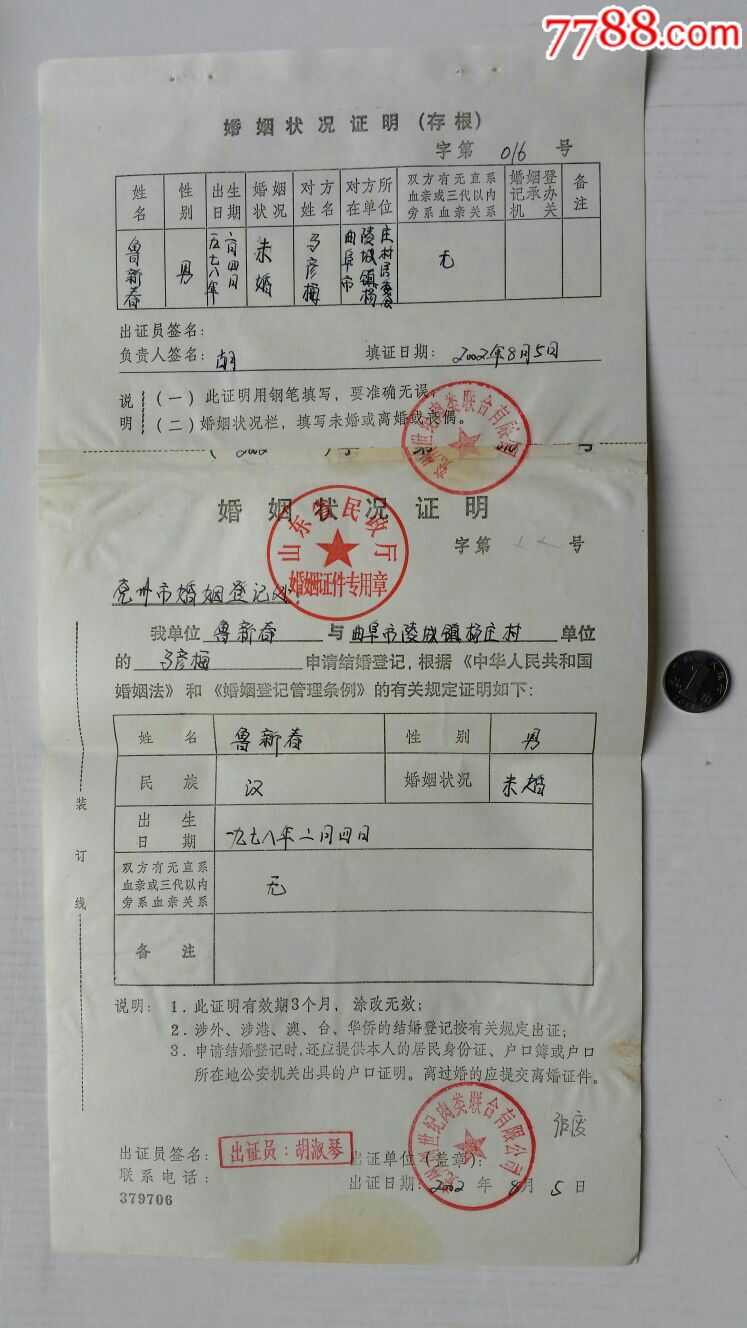 7788.com
婚姻状况证明(存根)
字第 016 号
姓名 性别 出生日期 婚姻状况 对方姓名 对方所在单位 双方有无直系血亲或三代以内旁系血亲关系 婚姻登记承办机关 备注
鲁新春 男 一九七八年二月四日 未婚 马彦梅 曲阜市陵城镇杨庄村居委会 无
出证员签名:
负责人签名: 胡 填证日期: 2002年8月5日
说明 (一)此证明用钢笔填写,要准确无误;
(二)婚姻状况栏,填写未婚或离婚或丧偶。
世纪肉类联合有限公司
(2002)字第 016 号
婚姻状况证明
山东省民政厅
婚姻证件专用章
字第 号
兖州市婚姻登记处:
我单位 鲁新春 与 曲阜市陵城镇杨庄村 单位
的 马彦梅 申请结婚登记,根据《中华人民共和国
婚姻法》和《婚姻登记管理条例》的有关规定证明如下:
姓名 鲁新春 性别 男
民族 汉 婚姻状况 未婚
出生日期 一九七八年二月四日
双方有无直系血亲或三代以内旁系血亲关系 无
备注
装订线
说明: 1.此证明有效期3个月,涂改无效;
2.涉外、涉港、澳、台、华侨的结婚登记按有关规定出证;
3.申请结婚登记时,还应提供本人的居民身份证、户口簿或户口
所在地公安机关出具的户口证明。离过婚的应提交离婚证件。
出证员签名: 出证员:胡淑琴 出证单位(盖章):
世纪肉类联合有限公司
联系电话: 出证日期: 2002 年 8 月 5 日
379706